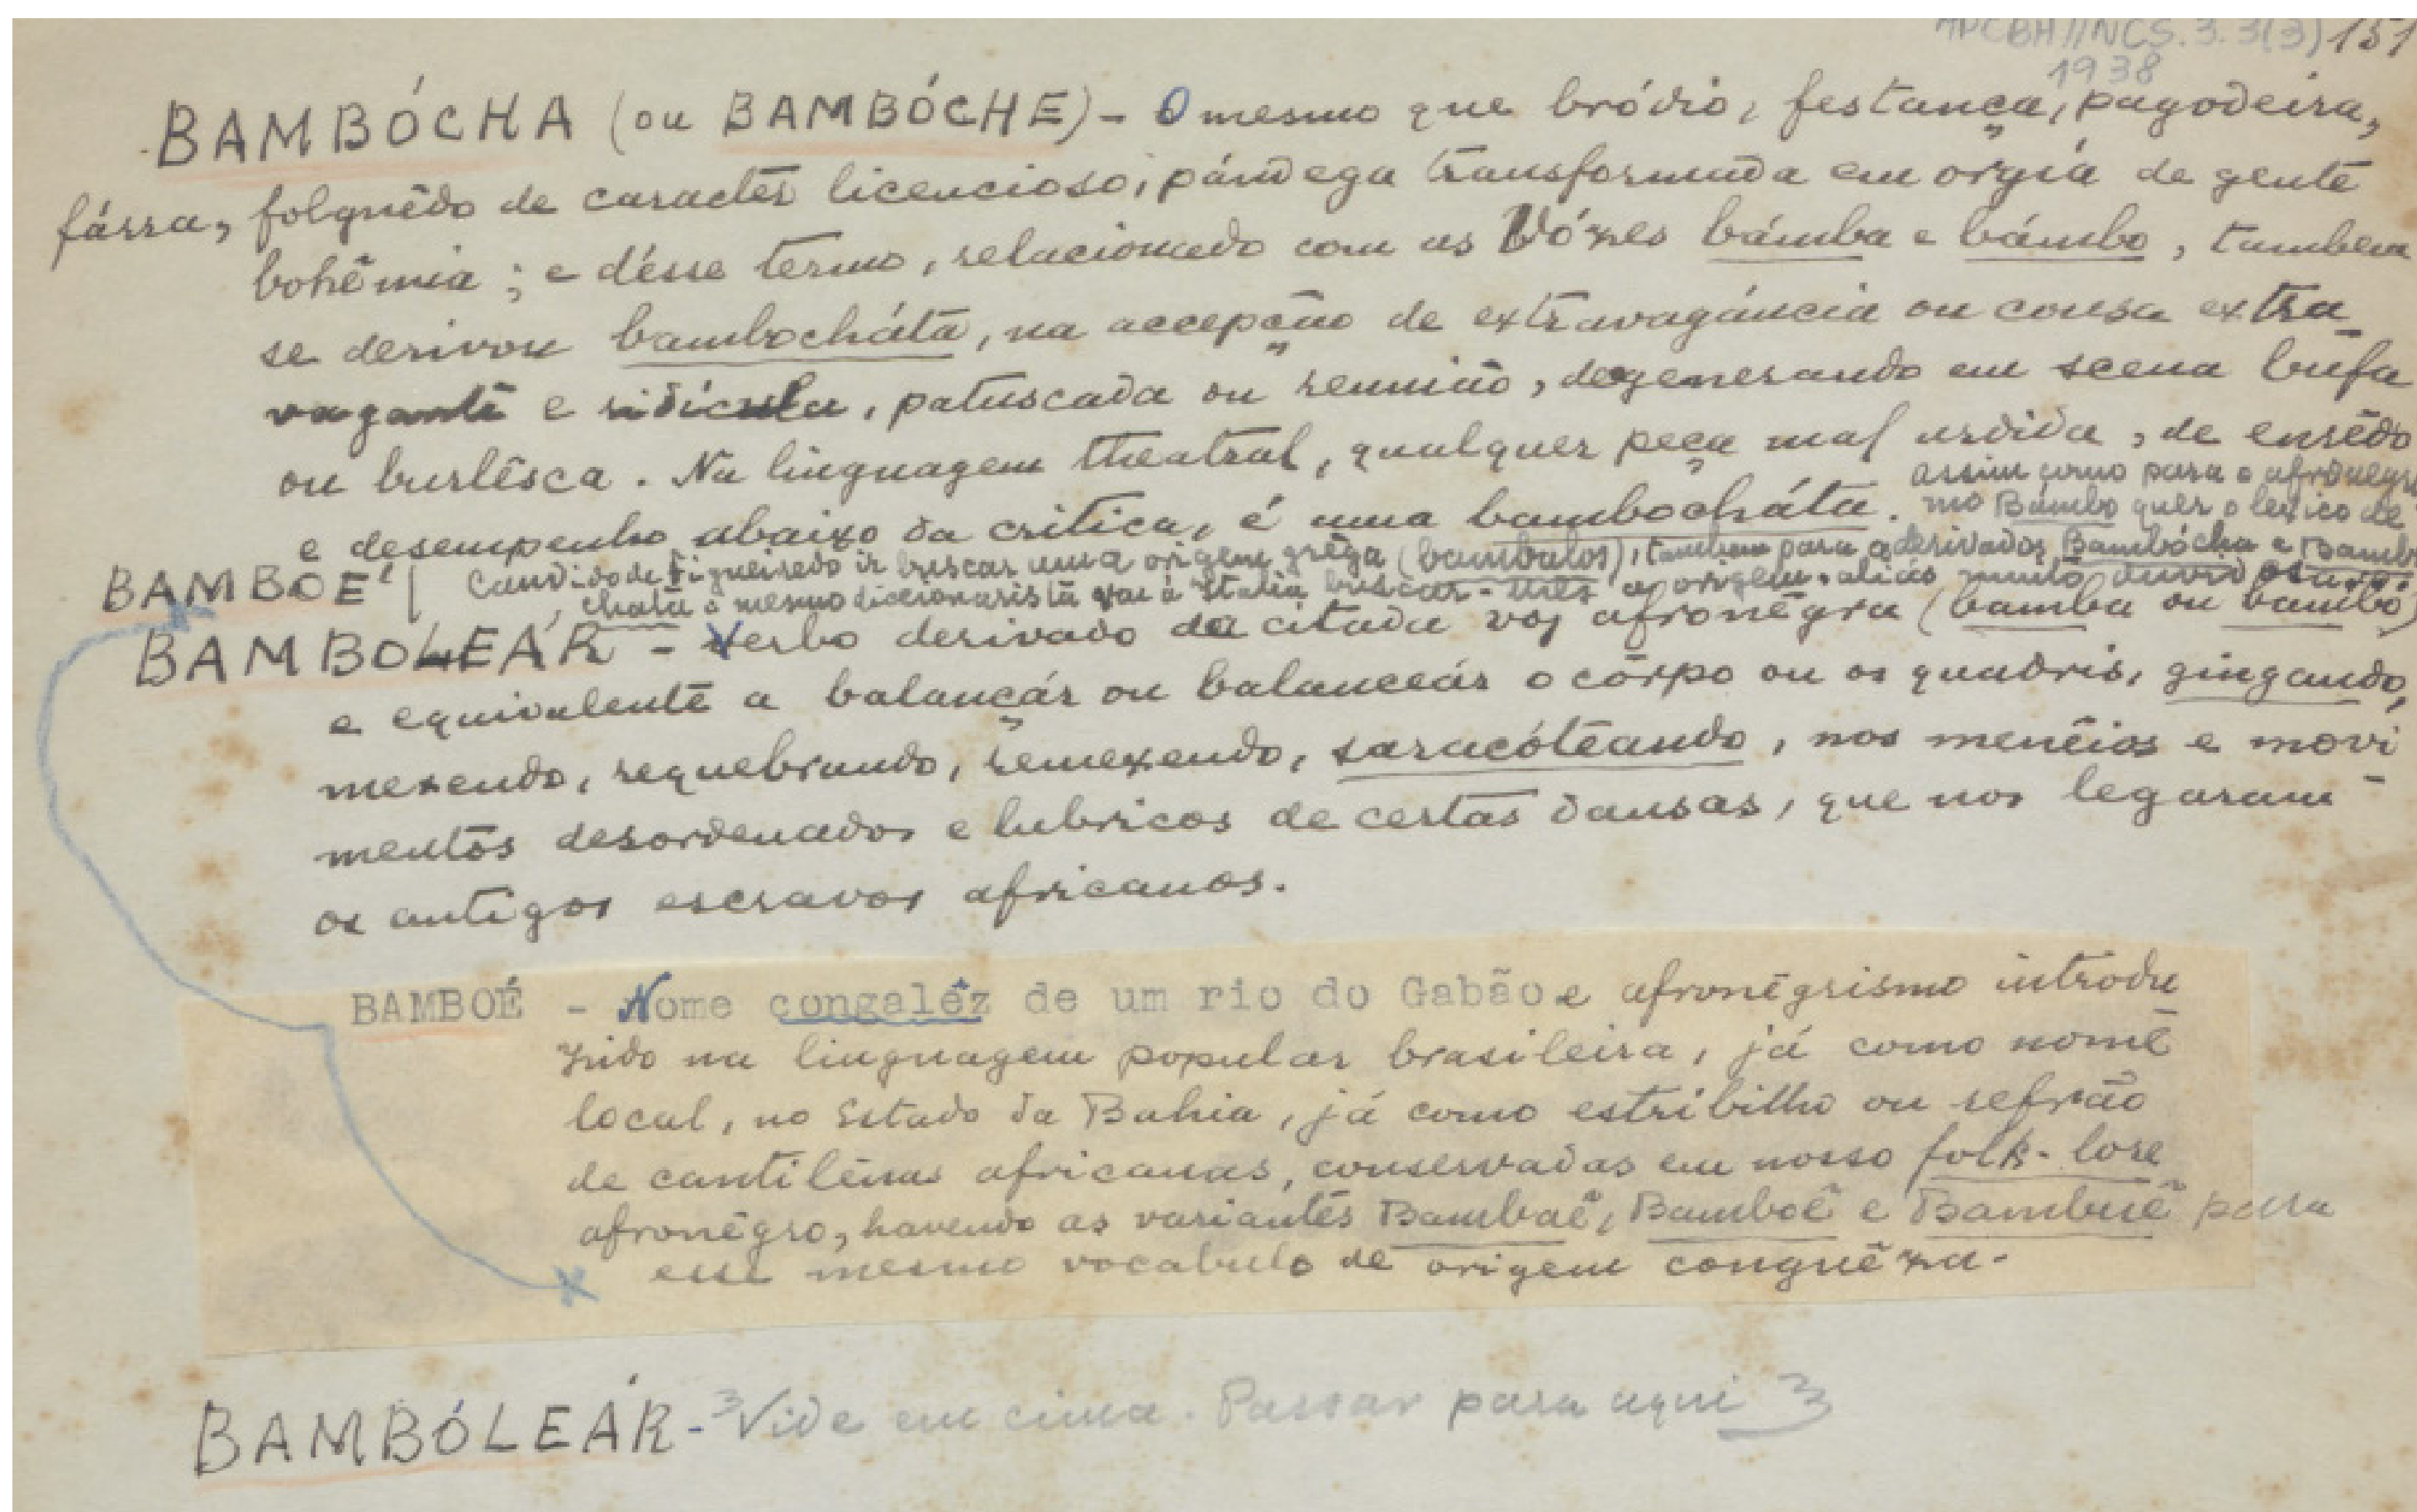 APCBH//NCS.3.3(3) 151
1938
BAMBÓCHA (ou BAMBÓCHE) - O mesmo que bródio, festança, pagodeira,
fárra, folguêdo de caracter licencioso, pándega transformada em orgia de gente
bohêmia; e désse termo, relacionado com as vózes bámba e bámbo, tambem
se derivou bambocháta, na accepção de extravagáncia ou cousa extra-
vagante e ridícula, patuscada ou reunião, degenerando em scena bufa
ou burlêsca. Na linguagem theatral, qualquer peça mal urdida, de enrêdo
e desempenho abaixo da critica, é uma bambocháta. assim como para o afronegris
mo Bambo quer o lexico de
Candido de Figueiredo ir buscar uma origem grêga (bambalos), tambem para os derivados Bambócha e Bambo
chata o mesmo diccionarista vae á Italia buscar-lhes a origem, aliás muito duvidosa.
BAMBOÉ
BAMBOLEÁR - Verbo derivado da citada voz afronégra (bamba ou bambo)
e equivalente a balançár ou balanceár o córpo ou os quadris, gingando,
mexendo, requebrando, remexendo, saracóteando, nos menêios e movi-
mentos desordenados e lubricos de certas dansas, que nos legaram
os antigos escravos africanos.
BAMBOÉ - Nome congalêz de um rio do Gabão e afronêgrismo introdu
zido na linguagem popular brasileira, já como nome
local, no Estado da Bahia, já como estribilho ou refrão
de cantilênas africanas, conservadas em nosso folk-lore
afronêgro, havendo as variantes Bambaê, Bamboê e Bambuê para
esse mesmo vocabulo de origem conguêza.
BAMBÓLEÁR - Vide em cima. Passar para aqui